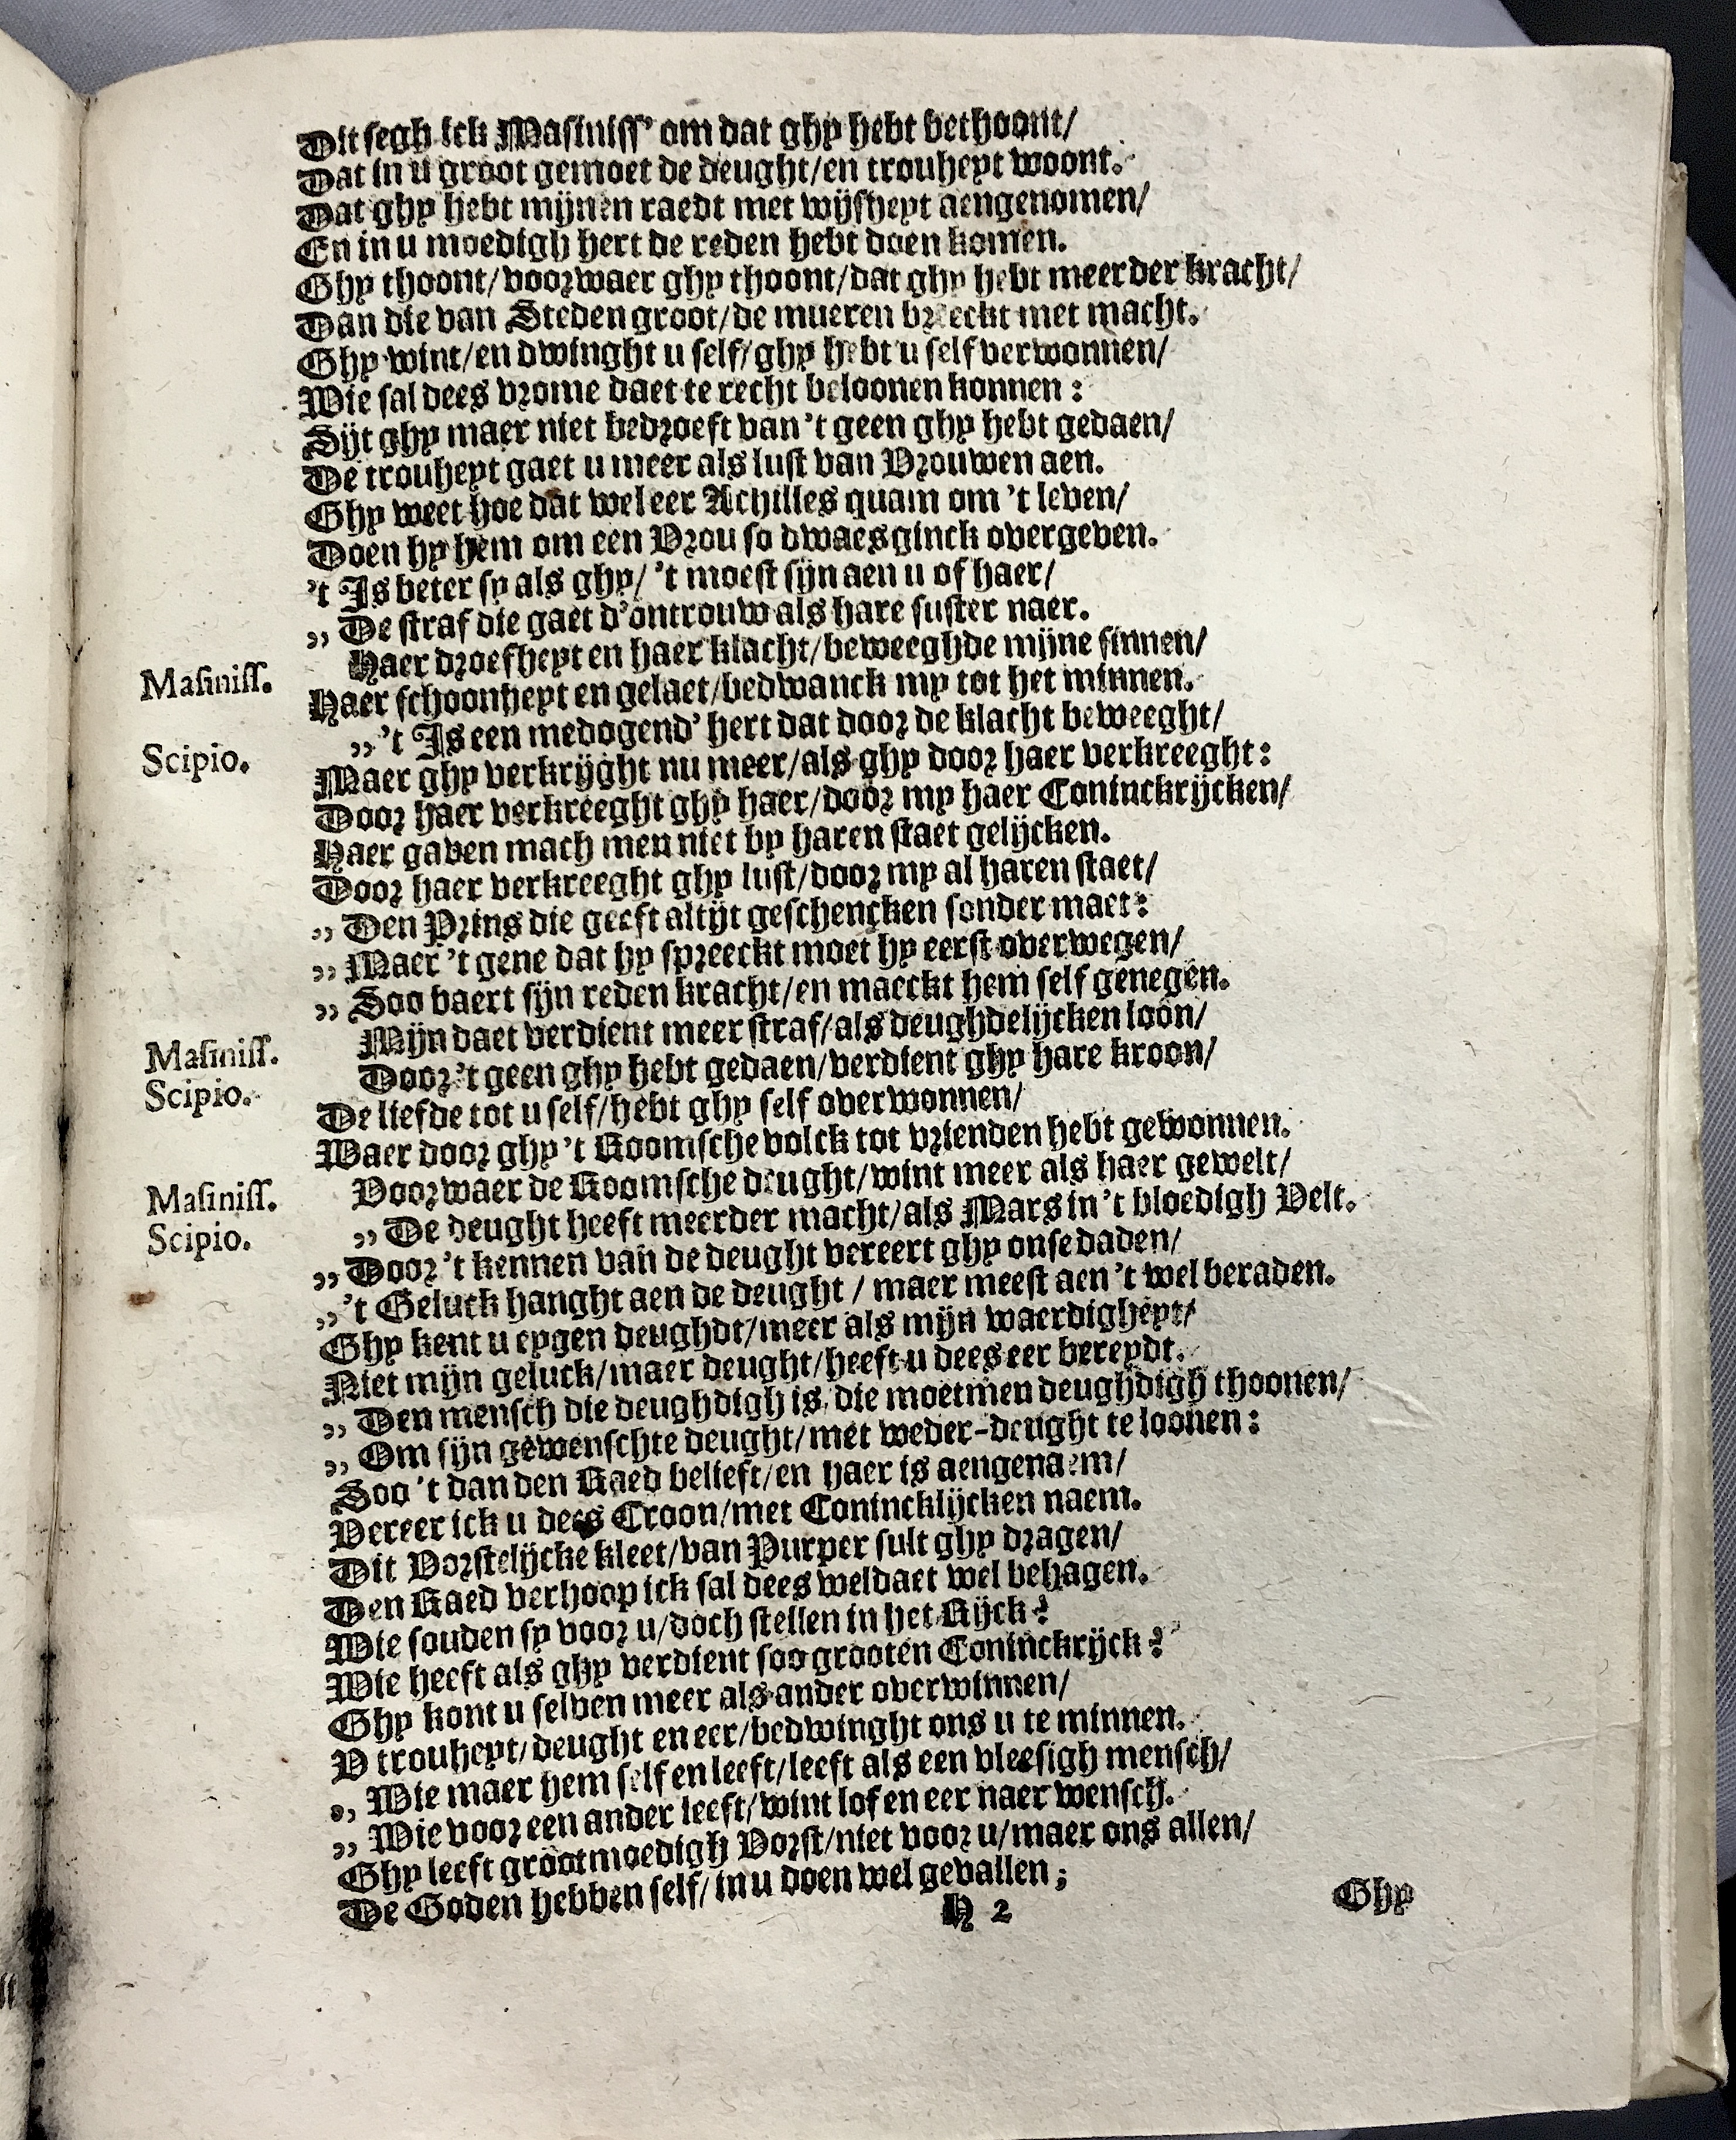 Dit segh ick Masiniss' om dat ghy hebt bethoont/
Dat in u groot gemoet de deught/en trouheyt woont.
Dat ghy hebt mijnen raedt met wijsheyt aengenomen/
En in u moedigh hert de reden hebt doen komen.
Ghy thoont/voorwaer ghy thoont/dat ghy hebt meerder kracht/
Dan die van Steden groot/de mueren breeckt met macht.
Ghy wint/en dwinght u self/ghy hebt u self verwonnen/
Wie sal dees vrome daet te recht beloonen konnen:
Sijt ghy maer niet bedroeft van 't geen ghy hebt gedaen/
De trouheyt gaet u meer als lust van Vrouwen aen.
Ghy weet hoe dat wel eer Achilles quam om 't leven/
Doen hy hem om een Vrou so dwaes ginck overgeven.
't Is beter sy als ghy/ 't moest sijn aen u of haer/
,, De straf die gaet d'ontrouw als hare suster naer.
Masiniss. Haer droefheyt en haer klacht/beweeghde mijne sinnen/
Haer schoonheyt en gelaet/bedwanck my tot het minnen.
Scipio. ,, 't Is een medogend' hert dat door de klacht beweeght/
Maer ghy verkrijght nu meer/als ghy door haer verkreeght:
Door haer verkreeght ghy haer/door my haer Coninckrijcken/
Haer gaven mach men niet by haren staet gelijcken.
Door haer verkreeght ghy lust/door my al haren staet/
,, Den Prins die geeft altijt geschencken sonder maet:
,, Maer 't gene dat hy spreeckt moet hy eerst overwegen/
,, Soo baert sijn reden kracht/en maeckt hem self genegen.
Masiniss. Mijn daet verdient meer straf/als deughdelijcken loon/
Scipio. Door 't geen ghy hebt gedaen/verdient ghy hare kroon/
De liefde tot u self/hebt ghy self overwonnen/
Waer door ghy 't Roomsche volck tot vrienden hebt gewonnen.
Masiniss. Voorwaer de Roomsche deught/wint meer als haer gewelt/
Scipio. ,, De deught heeft meerder macht/als Mars in 't bloedigh Velt.
,, Door 't kennen van de deught vereert ghy onse daden/
,, 't Geluck hanght aen de deught / maer meest aen 't wel beraden.
Ghy kent u eygen deughdt/meer als mijn waerdigheyt/
Niet mijn geluck/maer deught/heeft u dees eer bereydt.
,, Den mensch die deughdigh is/die moet men deughdigh thoonen/
,, Om sijn gewenschte deught/met weder-deught te loonen:
Soo 't dan den Raed belieft/en haer is aengenaem/
Vereer ick u dees Croon/met Conincklijcken naem.
Dit Vorstelijcke kleet/van Purper sult ghy dragen/
Den Raed verhoop ick sal dees weldaet wel behagen.
Wie souden sy voor u/doch stellen in het Rijck?
Wie heeft als ghy verdient soo grooten Coninckrijck?
Ghy kont u selven meer als ander overwinnen/
V trouheyt/deught en eer/bedwinght ons u te minnen.
,, Wie maer hem self en leeft/leeft als een vleesigh mensch/
,, Wie voor een ander leeft/wint lof en eer naer wensch.
Ghy leeft grootmoedigh Vorst/niet voor u/maer ons allen/
De Goden hebben self/in u doen wel gevallen;
H 2
Ghy